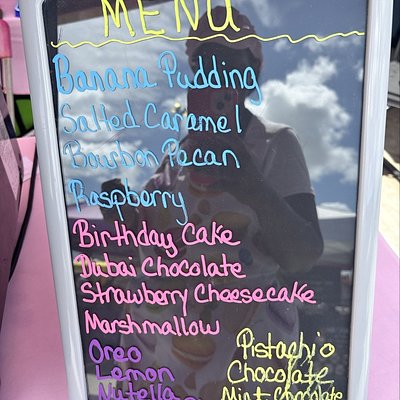 MENU
Banana Pudding
Salted Caramel
Bourbon Pecan
Raspberry
Birthday Cake
Dubai Chocolate
Strawberry Cheesecake
Marshmallow
Oreo
Lemon
Nutella
Pistachio
Chocolate
Mint Chocolate